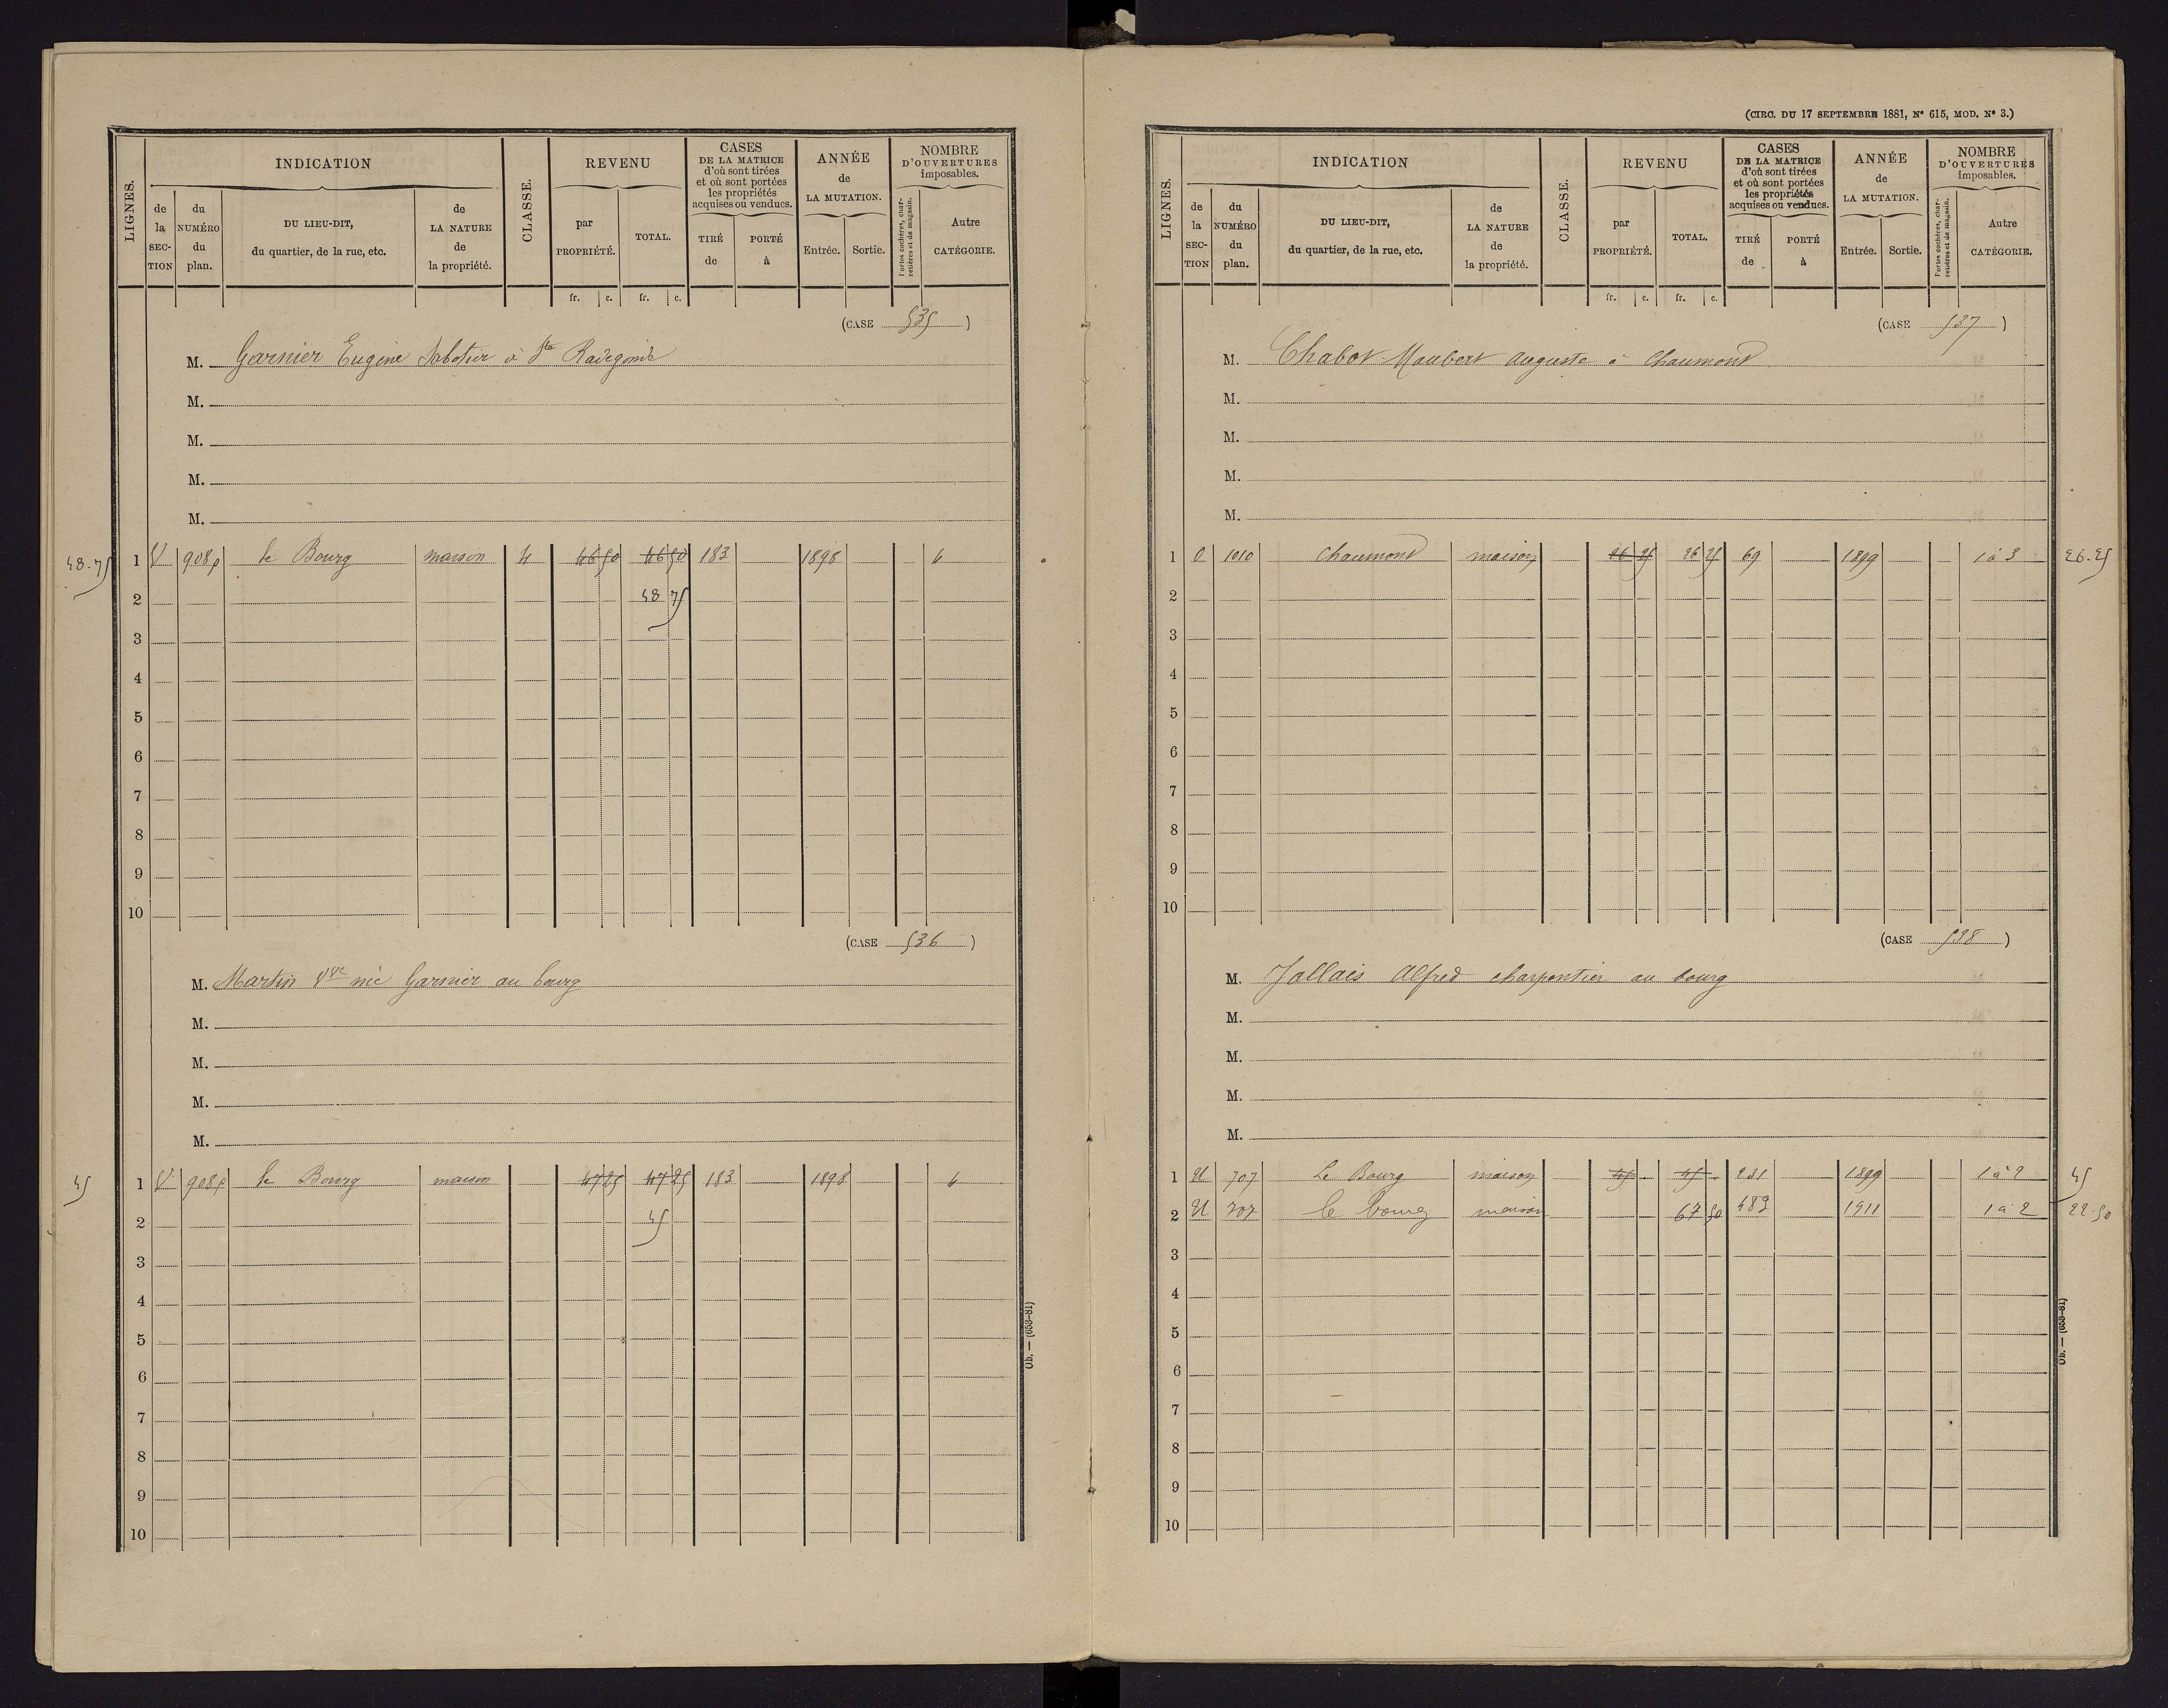 LIGNES.
INDICATION
de la SECTION
du NUMÉRO du plan.
DU LIEU-DIT, du quartier, de la rue, etc.
de LA NATURE de la propriété.
CLASSE.
REVENU
par PROPRIÉTÉ.
TOTAL.
fr. c. fr. c.
CASES DE LA MATRICE d'où sont tirées et où sont portées les propriétés acquises ou vendues.
TIRÉ de
PORTÉ à
ANNÉE de LA MUTATION.
Entrée. Sortie.
NOMBRE D'OUVERTURES imposables.
Portes cochères, charretières et de magasin.
Autre CATÉGORIE.
(CASE 535)
M. Garnier Eugène Sabotier à Ste Radegonde
M.
M.
M.
M.
48.75 1 V 908p le Bourg maison 4 46 50 46 50 183 1898 6
2 48 75
3
4
5
6
7
8
9
10
(CASE 536)
M. Martin Vve née Garnier au bourg
M.
M.
M.
M.
45 1 V 908p le Bourg maison 47 25 47 25 183 1898 6
2 45
3
4
5
6
7
8
9
10
Ob. — (653-81)
(CIRC. DU 17 SEPTEMBRE 1881, N° 615, MOD. N° 3.)
LIGNES.
INDICATION
de la SECTION
du NUMÉRO du plan.
DU LIEU-DIT, du quartier, de la rue, etc.
de LA NATURE de la propriété.
CLASSE.
REVENU
par PROPRIÉTÉ.
TOTAL.
fr. c. fr. c.
CASES DE LA MATRICE d'où sont tirées et où sont portées les propriétés acquises ou vendues.
TIRÉ de
PORTÉ à
ANNÉE de LA MUTATION.
Entrée. Sortie.
NOMBRE D'OUVERTURES imposables.
Portes cochères, charretières et de magasin.
Autre CATÉGORIE.
(CASE 537)
M. Chabot-Maubert Auguste à Chaumont
M.
M.
M.
M.
1 O 1010 Chaumont maison 26 25 26 25 69 1899 1 à 3 26.25
2
3
4
5
6
7
8
9
10
(CASE 538)
M. Jallais Alfred charpentier au bourg
M.
M.
M.
M.
1 U 707 Le Bourg maison 45 45 231 1899 1 à 2 45
2 U 707 le bourg maison 67 50 489 1911 1 à 2 22.50
3
4
5
6
7
8
9
10
Ob. — (653-81)